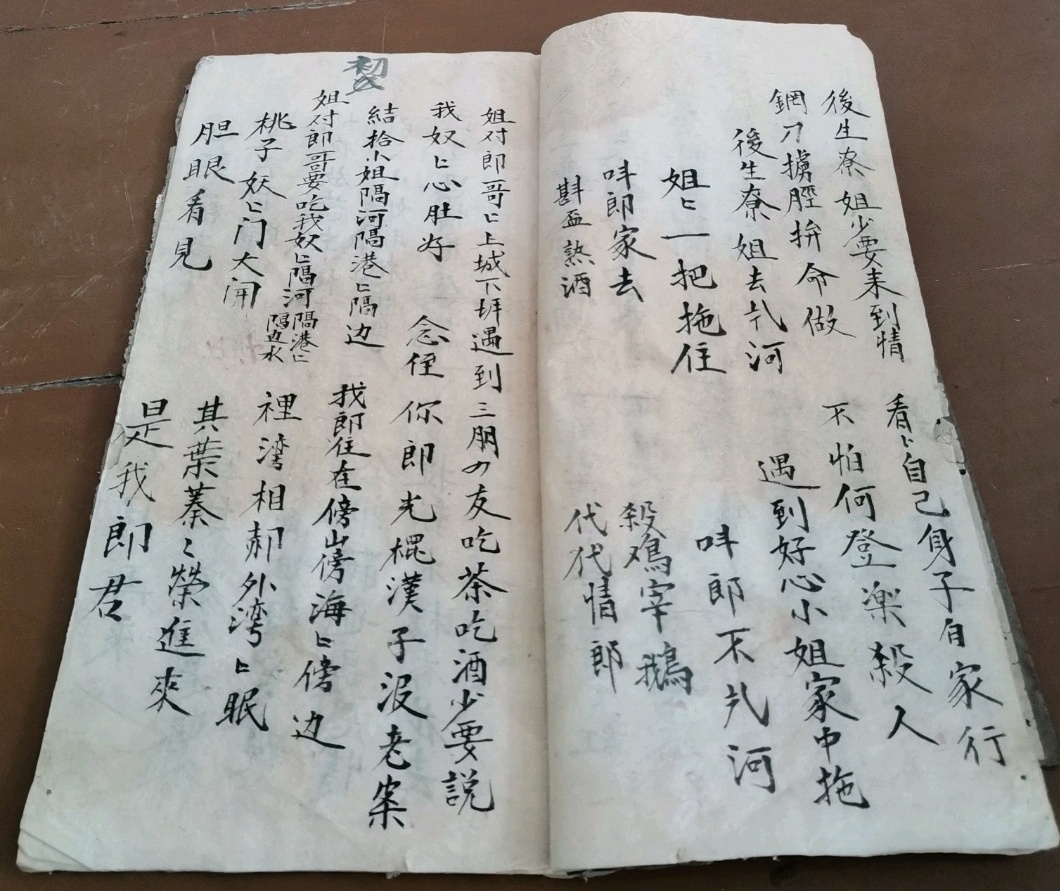 後生寮姐少要来到情
看〻自己身子自家行
鋼刀擄脛拚命做
不怕何登樂殺人
後生寮姐去氕河
遇到好心小姐家中拖
姐〻一把拖住
呌郎不氕河
呌郎家去
殺鳮宰鵝
斟盃熱酒
代代情郎
姐付郎哥〻上城下坼遇到三朋の友吃茶吃酒少要説
我奴〻心肚好
念侄你郎光棍漢子沒老案
結拾小姐隔河隔港〻隔边
我郎住在傍山傍海〻傍边
姐付郎哥要吃我奴〻隔河隔港〻隔边水
桃子妖〻门大闹
裡湾相郝外湾〻眠
胆眼看見
其葉蓁〻榮進來
是我郎君